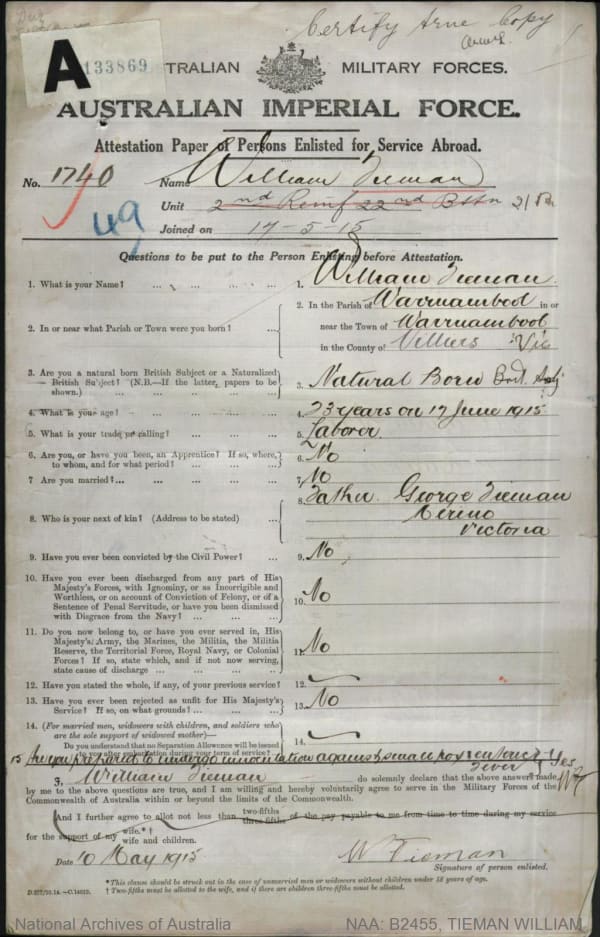 Certify true Copy
A 133869
AUSTRALIAN MILITARY FORCES.
AUSTRALIAN IMPERIAL FORCE.
Attestation Paper of Persons Enlisted for Service Abroad.
No. 1740 Name William Tieman
Unit 2nd Reinf 22nd Battn
49
Joined on 17-5-15
Questions to be put to the Person Enlisting before Attestation.
1. What is your Name? ... 1. William Tieman
2. In or near what Parish or Town were you born? ... 2. In the Parish of Warrnambool in or
near the Town of Warrnambool
in the County of Villiers Vic
3. Are you a natural born British Subject or a Naturalized
British Subject? (N.B.—If the latter, papers to be
shown.) 3. Natural Born Brit Subj
4. What is your age? 4. 23 years on 17 June 1915
5. What is your trade or calling? 5. Laborer
6. Are you, or have you been, an Apprentice? If so, where,
to whom, and for what period? 6. No
7. Are you married? ... 7. No
8. Who is your next of kin? (Address to be stated) ... 8. Father George Tieman
Merino
Victoria
9. Have you ever been convicted by the Civil Power? ... 9. No
10. Have you ever been discharged from any part of His
Majesty's Forces, with Ignominy, or as Incorrigible and
Worthless, or on account of Conviction of Felony, or of a
Sentence of Penal Servitude, or have you been dismissed
with Disgrace from the Navy? ... 10. No
11. Do you now belong to, or have you ever served in, His
Majesty's Army, the Marines, the Militia, the Militia
Reserve, the Territorial Force, Royal Navy, or Colonial
Forces? If so, state which, and if not now serving,
state cause of discharge ... 11. No
12. Have you stated the whole, if any, of your previous service? 12.
13. Have you ever been rejected as unfit for His Majesty's
Service? If so, on what grounds? ... 13. No
14. (For married men, widowers with children, and soldiers who
are the sole support of widowed mother)—
Do you understand that no Separation Allowance will be issued
to you after embarkation during your term of service? 14.
15 Are you prepared to undergo innoculation against small pox & enteric Yes
fever
I, William Tieman do solemnly declare that the above answers made
by me to the above questions are true, and I am willing and hereby voluntarily agree to serve in the Military Forces of the
Commonwealth of Australia within or beyond the limits of the Commonwealth.
And I further agree to allot not less than two-fifths
three-fifths of the pay payable to me from time to time during my service
for the support of my wife.*†
wife and children.
Date 10 May 1915 W Tieman
Signature of person enlisted.
* This clause should be struck out in the case of unmarried men or widowers without children under 18 years of age.
† Two-fifths must be allotted to the wife, and if there are children three-fifths must be allotted.
National Archives of Australia NAA: B2455, TIEMAN WILLIAM